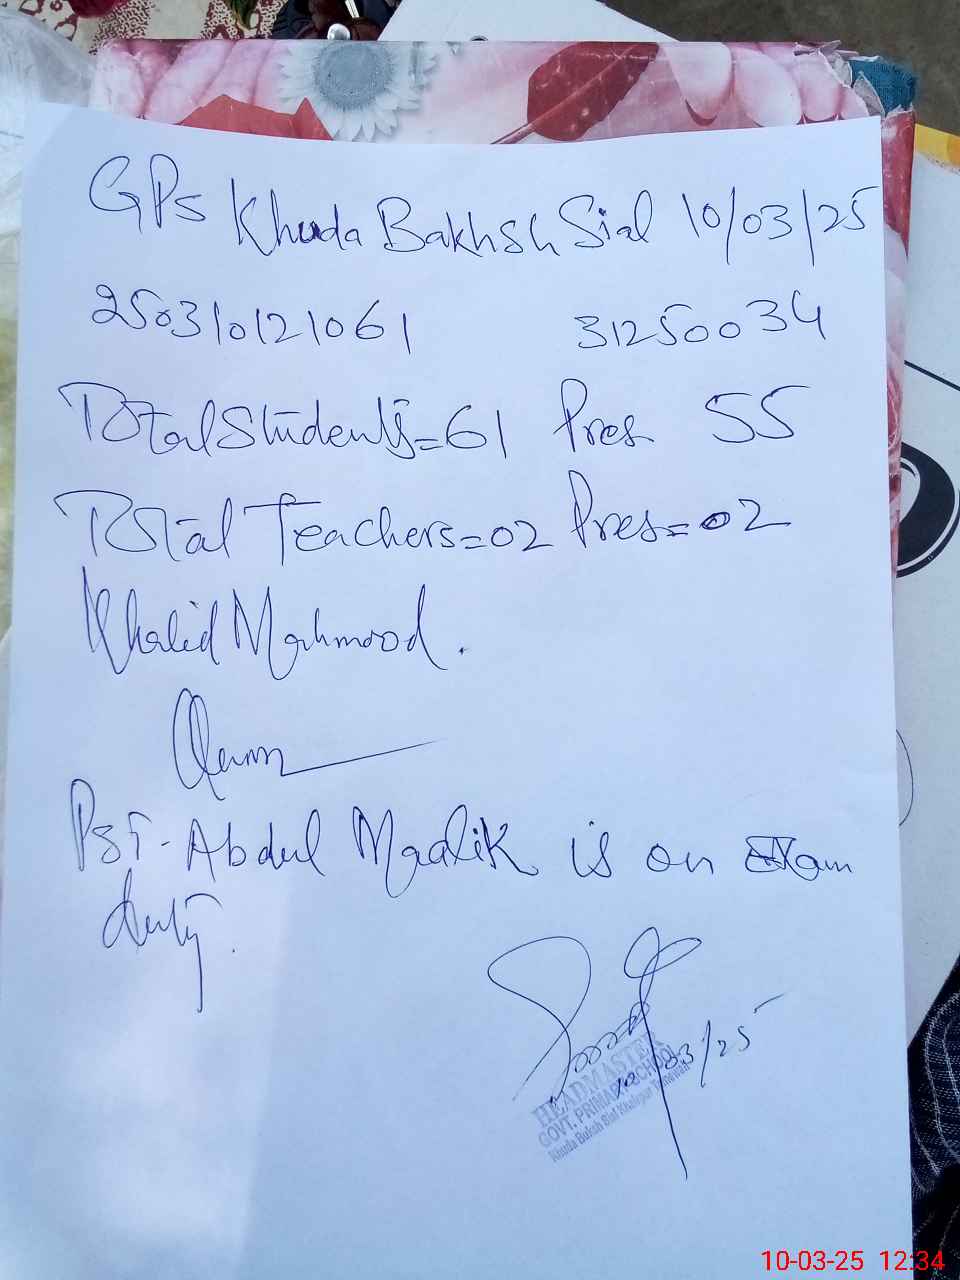 GPS Khuda Bakhsh Sial 10/03/25
250310121061 31250034
Total Students=61 Pres 55
Total Teachers=02 Pres=02
Khalid Mahmood.
PST-Abdul Maalik is on Exam
duty.
10/03/25
HEADMASTER
GOVT. PRIMARY SCHOOL
Khuda Buksh Sial Khanpur
10-03-25 12:34